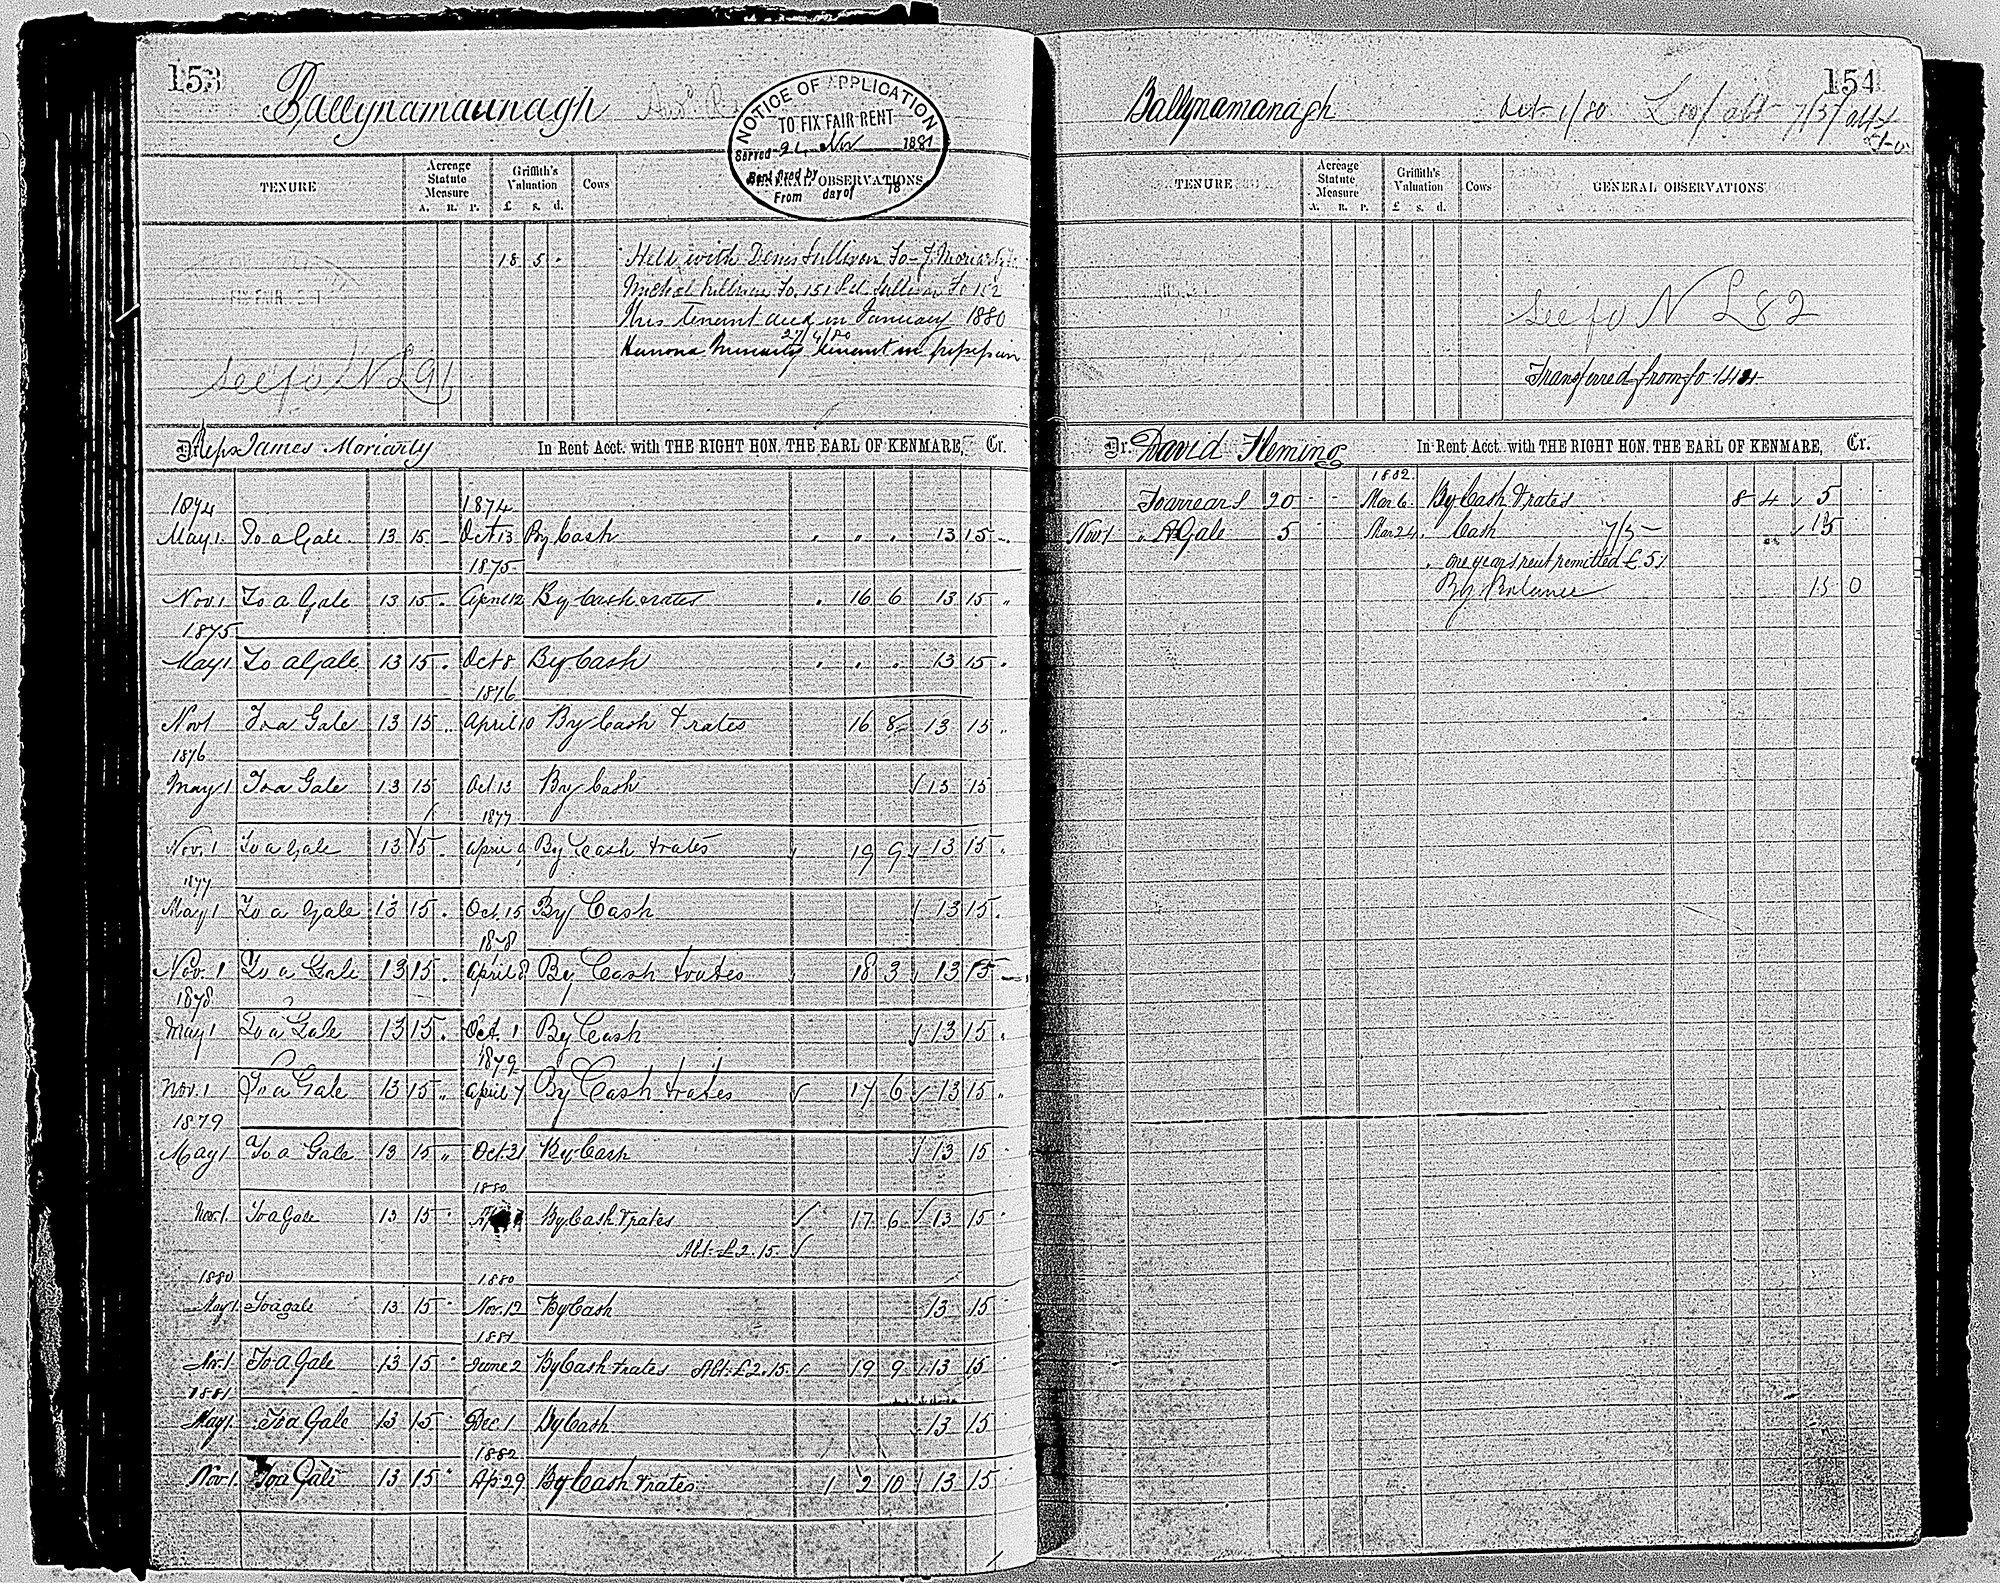 153
Ballynamaunagh
NOTICE OF APPLICATION
TO FIX FAIR RENT
Served 24 Nov 1881
Rent fixed by
From day of 18
TENURE
Acreage Statute Measure
A. R. P.
Griffith's Valuation
£ s. d.
Cows
GENERAL OBSERVATIONS
18 5 "
Held with Denis Sullivan Fo - J. Moriarty
Michael Sullivan Fo. 151 Pat Sullivan Fo 152
This tenant died in January 1880
27/4/80
Hanora Moriarty tenant in possession
FIX FAIR
See fo N L 91
Dr. Reps James Moriarty In Rent Acct. with THE RIGHT HON. THE EARL OF KENMARE, Cr.
1874 1874
May 1 To a Gale 13 15 - Oct 13 By Cash " " " 13 15 -
1875
Nov. 1 To a Gale 13 15 " April 12 By Cash & rates " 16 6 13 15 "
1875
May 1 To a Gale 13 15 " Oct 8 By Cash " " " 13 15 "
1876
Nov 1 To a Gale 13 15 " April 10 By Cash & rates 16 8 13 15 "
1876
May 1 To a Gale 13 15 Oct 13 By Cash 13 15
1877
Nov. 1 To a Gale 13 15 " April 9 By Cash & rates 19 9 13 15 "
1877
May 1 To a Gale 13 15 " Oct. 15 By Cash 13 15 "
1878
Nov. 1 To a Gale 13 15 " April 8 By Cash & rates 18 3 13 15 -
1878
May 1 To a Gale 13 15 " Oct. 1 By Cash 13 15 "
1879
Nov. 1 To a Gale 13 15 " April 7 By Cash & rates 17 6 13 15 "
1879
May 1 To a Gale 13 15 " Oct 31 By Cash 13 15 "
1880
Nov. 1 To a Gale 13 15 " By Cash & rates 17 6 13 15 "
Abt. £2.15.
1880 1880
May 1 To a gale 13 15 " Nov. 12 By Cash 13 15 "
1881
Nov. 1 To a Gale 13 15 " June 2 By Cash & rates Abt. £2.15. 19 9 13 15 "
1881
May 1 To a Gale 13 15 " Dec 1 By Cash 13 15
1882
Nov. 1 To a Gale 13 15 " Ap 29 By Cash & rates 1 2 10 13 15
154
Ballynamanagh Oct 1/80 abt 7/5/
TENURE
Acreage Statute Measure
A. R. P.
Griffith's Valuation
£ s. d.
Cows
GENERAL OBSERVATIONS
See fo N L 82
Transferred from fo
Dr. David Fleming In Rent Acct. with THE RIGHT HON. THE EARL OF KENMARE, Cr.
1882.
To arrears 20 - - Mar 6. By Cash & rates 8 4 5 - -
Nov. 1 " A Gale 5 - - Mar 24 " Cash 7/5 - 15
" one years rent remitted £5/
By Balance 15 0